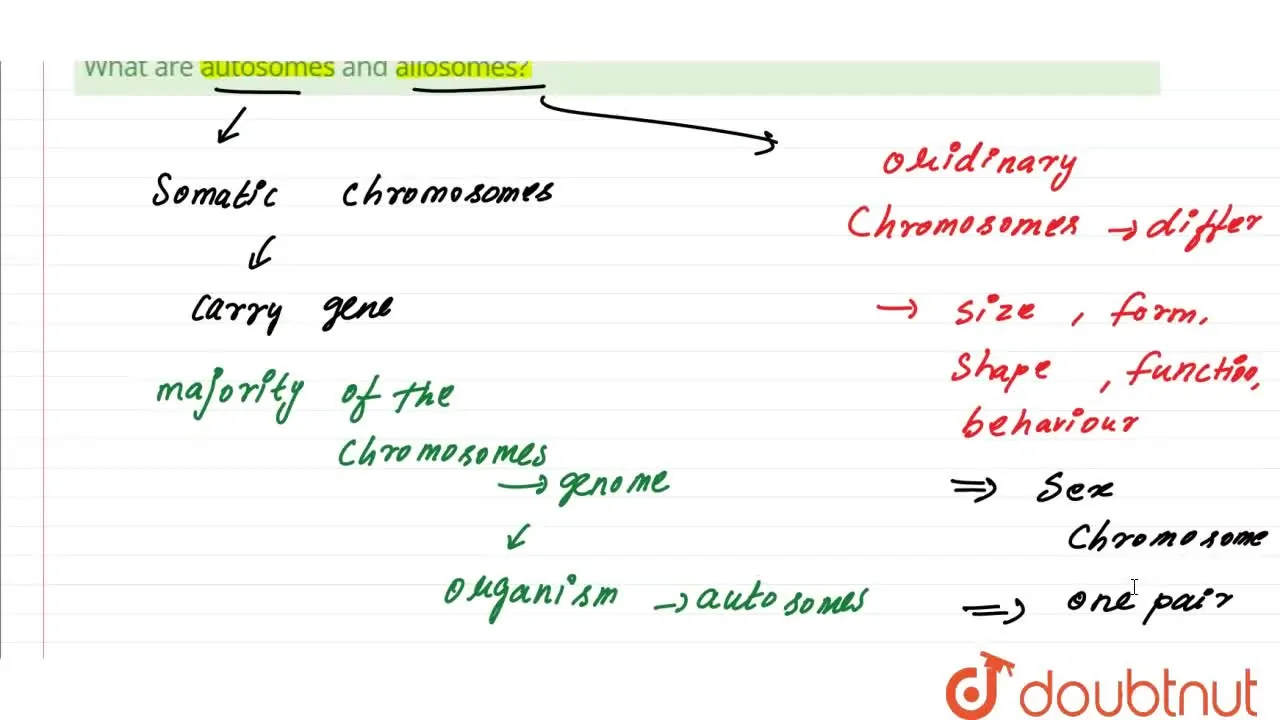 What are autosomes and allosomes?
Somatic chromosomes
Carry gene
majority of the
chromosomes
→ genome
organism → autosomes
oridinary
Chromosomes → differ
→ size , form,
Shape , function,
behaviour
⇒ Sex
Chromosome
⇒ one pair
doubtnut